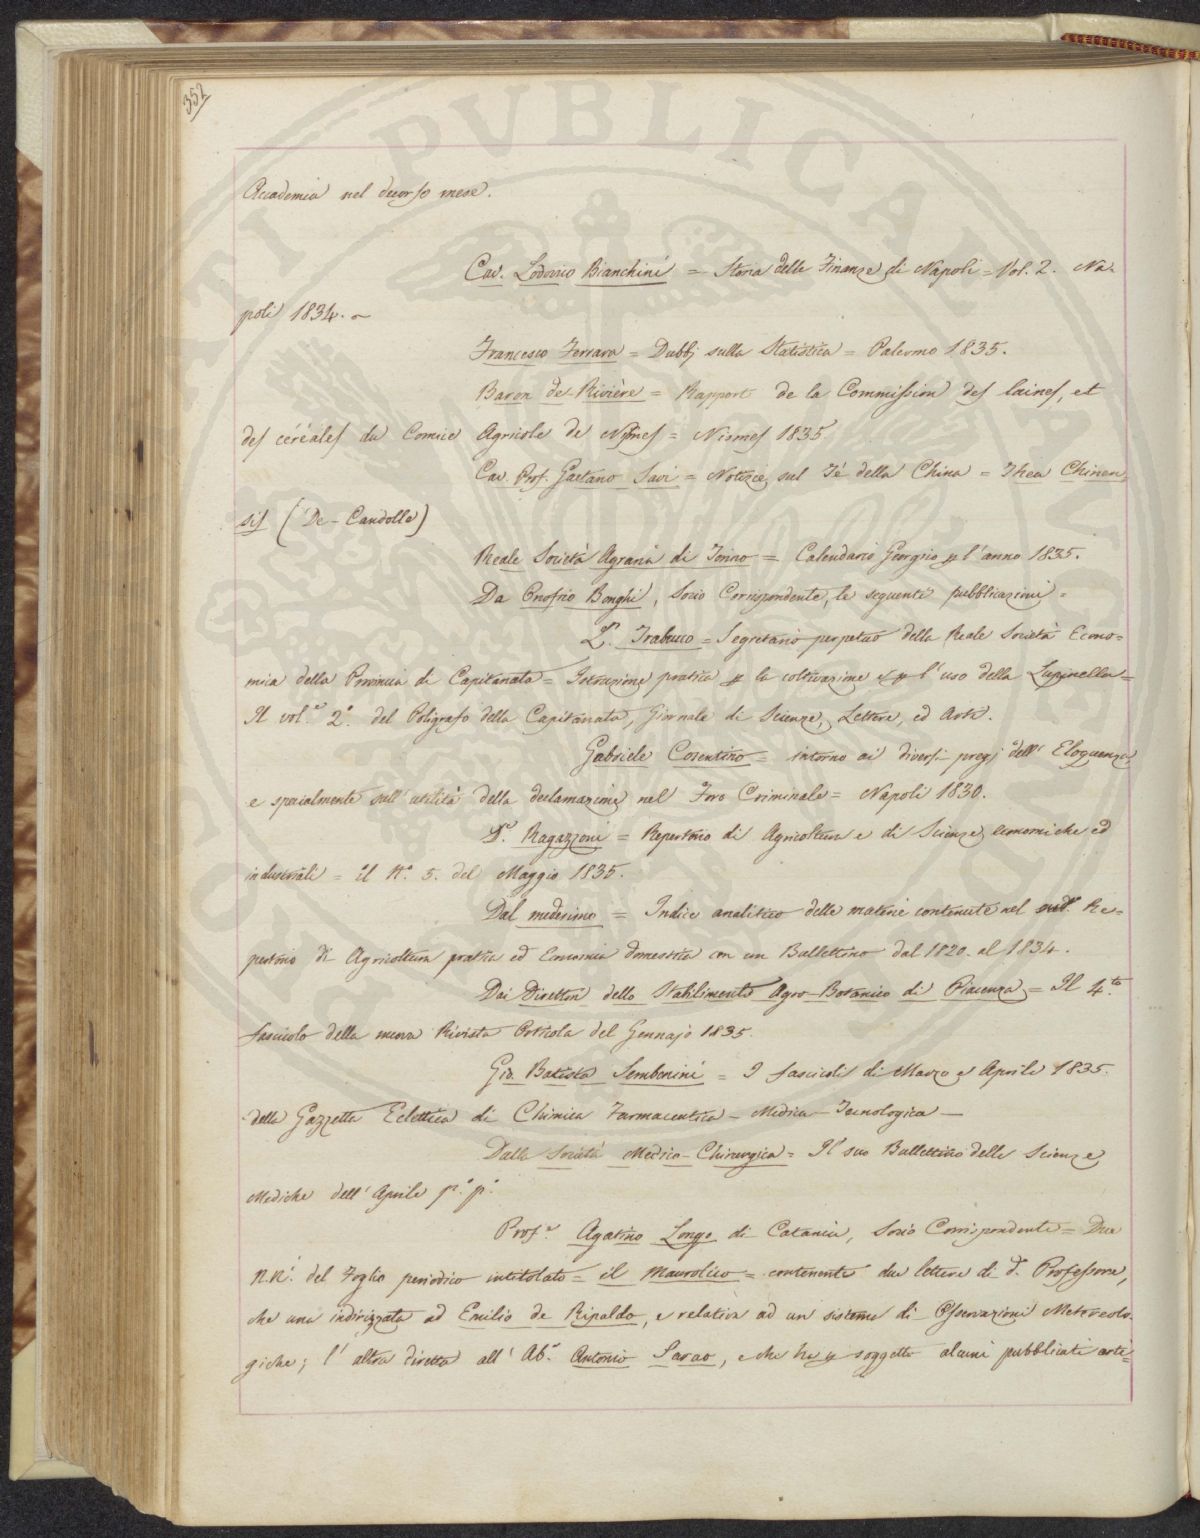 352
Accademia nel decorso mese.
Cav. Lodovico Bianchini = Storia delle Finanze di Napoli = Vol. 2. Na-
poli 1834. ~
Francesco Ferrara = Dubbj sulla Statistica = Palermo 1835.
Baron de Rivière = Rapport de la Commission des laines, et
des céréales du Comice Agricole de Nîmes = Nismes 1835.
Cav. Prof. Gaetano Savi = Notizie sul Té della China = Thea Chinen,
sis (De-Candolle)
Reale Società Agraria di Torino = Calendario Georgico p l'anno 1835.
Da Onofrio Bonghi, Socio Corrispondente, le seguenti pubblicazioni =
Trabucco = Segretario perpetuo della Reale Società Econo=
mica della Provincia di Capitanata = Istruzione pratica p la coltivazione e p l'uso della Lupinella=
Il vol.e 2.o del Poligrafo della Capitanata, Giornale di Scienze, Lettere, ed Arti.
Gabriele Cosentino = intorno ai diversi pregj dell'Eloquenza,
e specialmente sull'utilità della declamazione nel Foro Criminale = Napoli 1830.
D.r Ragazzoni = Repertorio di Agricoltura e di Scienze economiche ed
industriali = il N.o 5. del Maggio 1835.
Dal medesimo = Indice analitico delle materie contenute nel sud.o Re=
pertorio di Agricoltura pratica ed Economia domestica con un Bullettino dal 1820. al 1834.
Dai Direttori dello Stabilimento Agro-Botanico di Piacenza = Il 4.to
fascicolo della nuova Rivista Orticola del Gennajo 1835.
Gio. Batista Sembenini = I fascicoli di Marzo e Aprile 1835.
della Gazzetta Eclettica di Chimica Farmaceutica - Medica - Tecnologica -
Dalla Società Medico-Chirurgica = Il suo Bullettino delle Scienze
Mediche dell'Aprile p.o p.o
Prof.e Agatino Longo di Catania, Socio Corrispondente = Due
N.N.i del Foglio periodico intitolato = il Maurolico = contenente due lettere di d.o Professore,
che una indirizzata ad Emilio de Tipaldo, e relativa ad un sistema di Osservazioni Meteorolo-
giche; l'altra diretta all'Ab.e Antonio Sarao, e che ha p soggetto alcuni pubblicati arti=